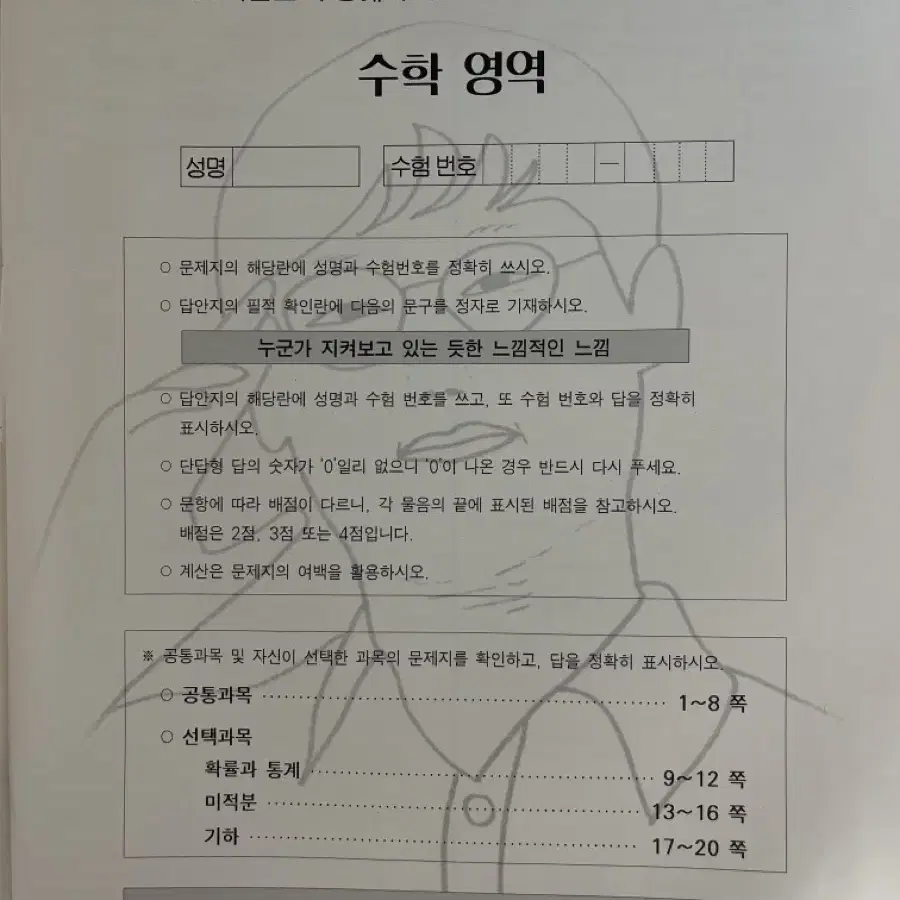 수학 영역
성명
수험 번호 —
○ 문제지의 해당란에 성명과 수험번호를 정확히 쓰시오.
○ 답안지의 필적 확인란에 다음의 문구를 정자로 기재하시오.
누군가 지켜보고 있는 듯한 느낌적인 느낌
○ 답안지의 해당란에 성명과 수험 번호를 쓰고, 또 수험 번호와 답을 정확히
표시하시오.
○ 단답형 답의 숫자가 '0'일리 없으니 '0'이 나온 경우 반드시 다시 푸세요.
○ 문항에 따라 배점이 다르니, 각 물음의 끝에 표시된 배점을 참고하시오.
배점은 2점, 3점 또는 4점입니다.
○ 계산은 문제지의 여백을 활용하시오.
※ 공통과목 및 자신이 선택한 과목의 문제지를 확인하고, 답을 정확히 표시하시오.
○ 공통과목 ···································· 1~8 쪽
○ 선택과목
확률과 통계 ···································· 9~12 쪽
미적분 ···································· 13~16 쪽
기하 ···································· 17~20 쪽